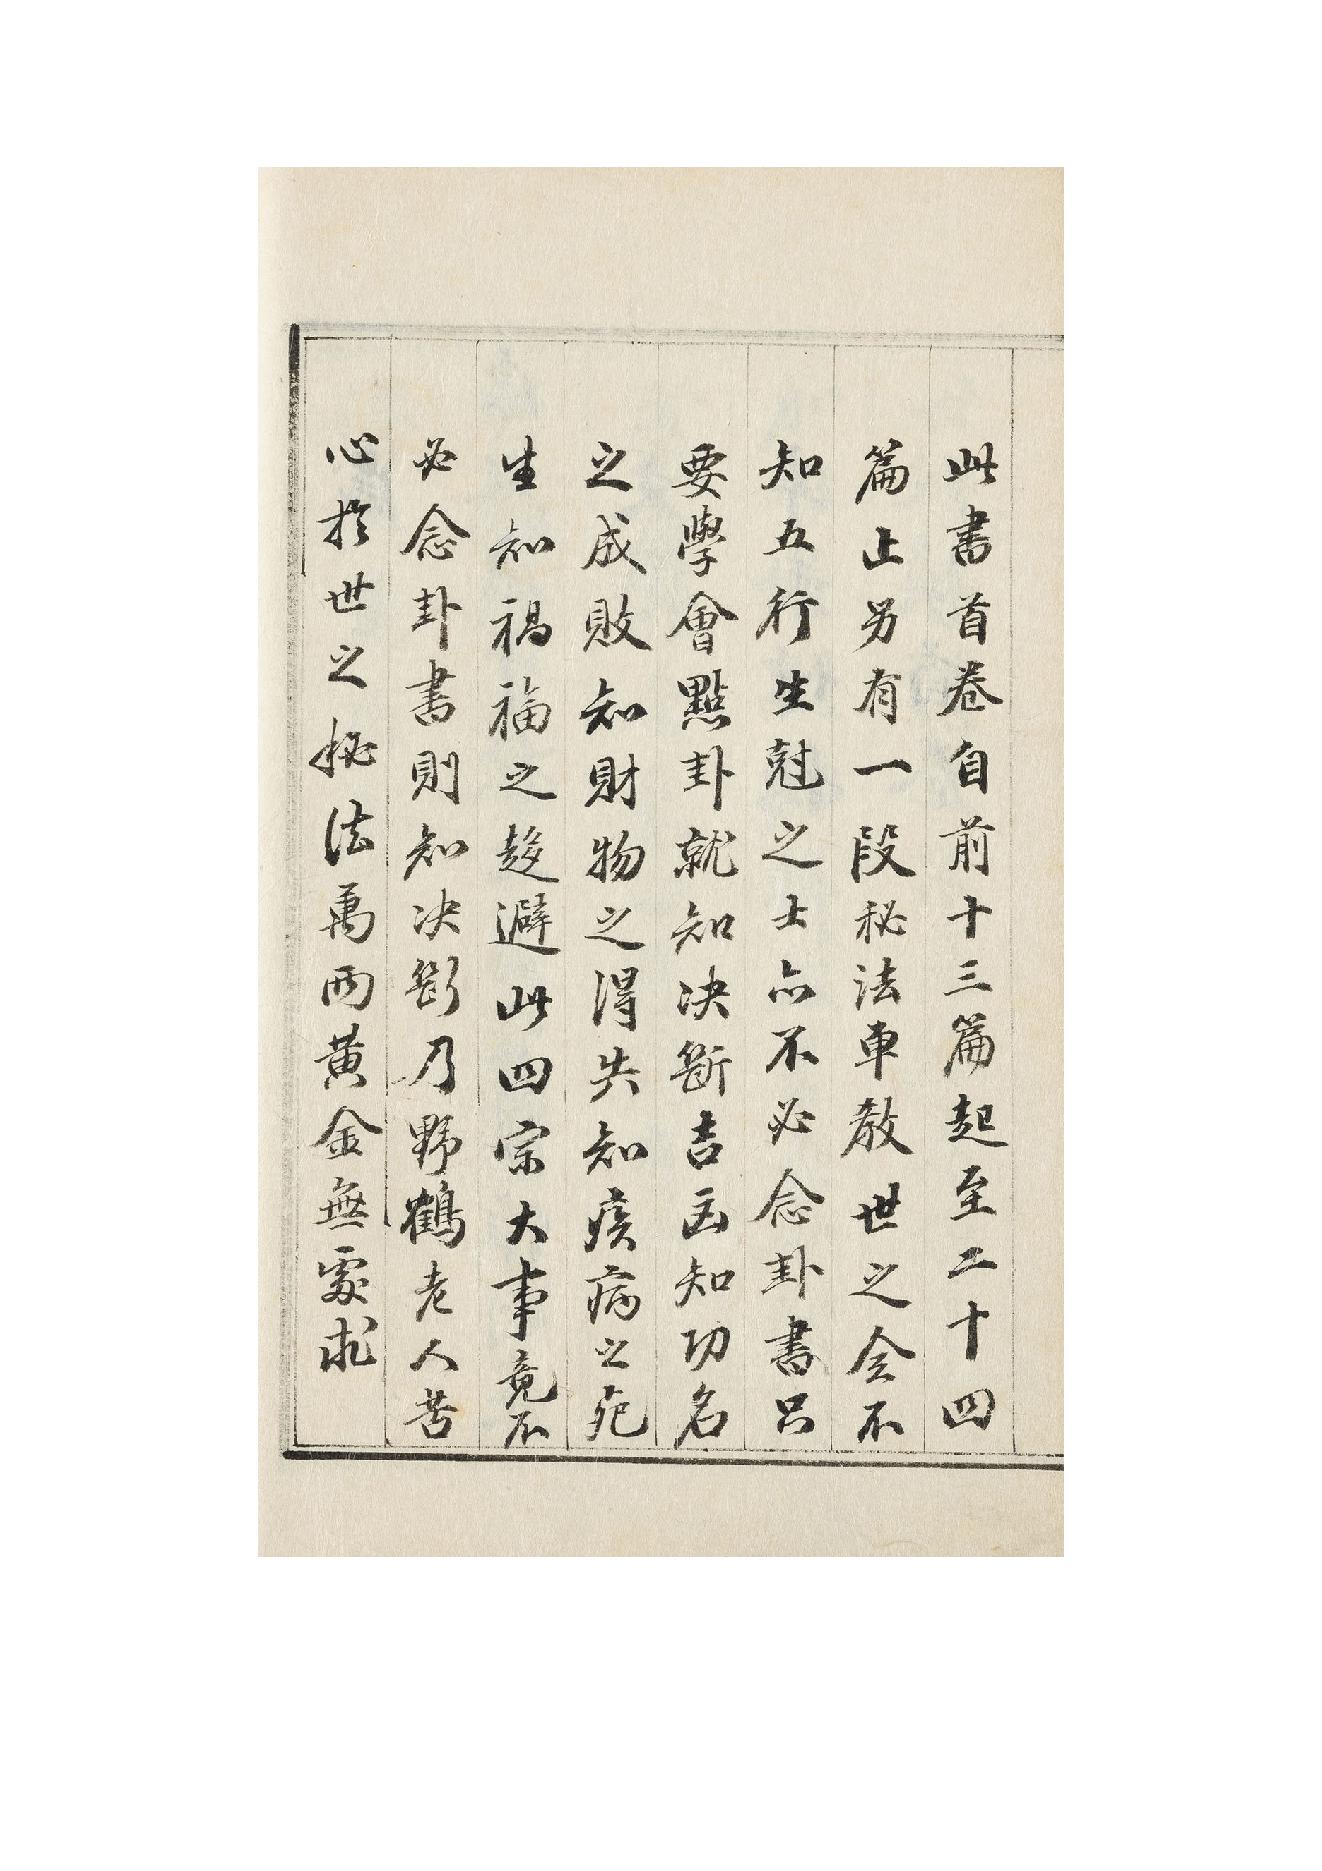 此書首卷自前十三篇起至二十四
篇止另有一段秘法車教世之今不
知五行生尅之士亦不必念卦書只
要學會點卦就知决斷吉凶知功名
之成敗知財物之得失知疾病之死
生知禍福之趍避此四宗大事竟不
必念卦書則知决斷乃野鶴老人苦
心於世之秘法萬両黄金無處求